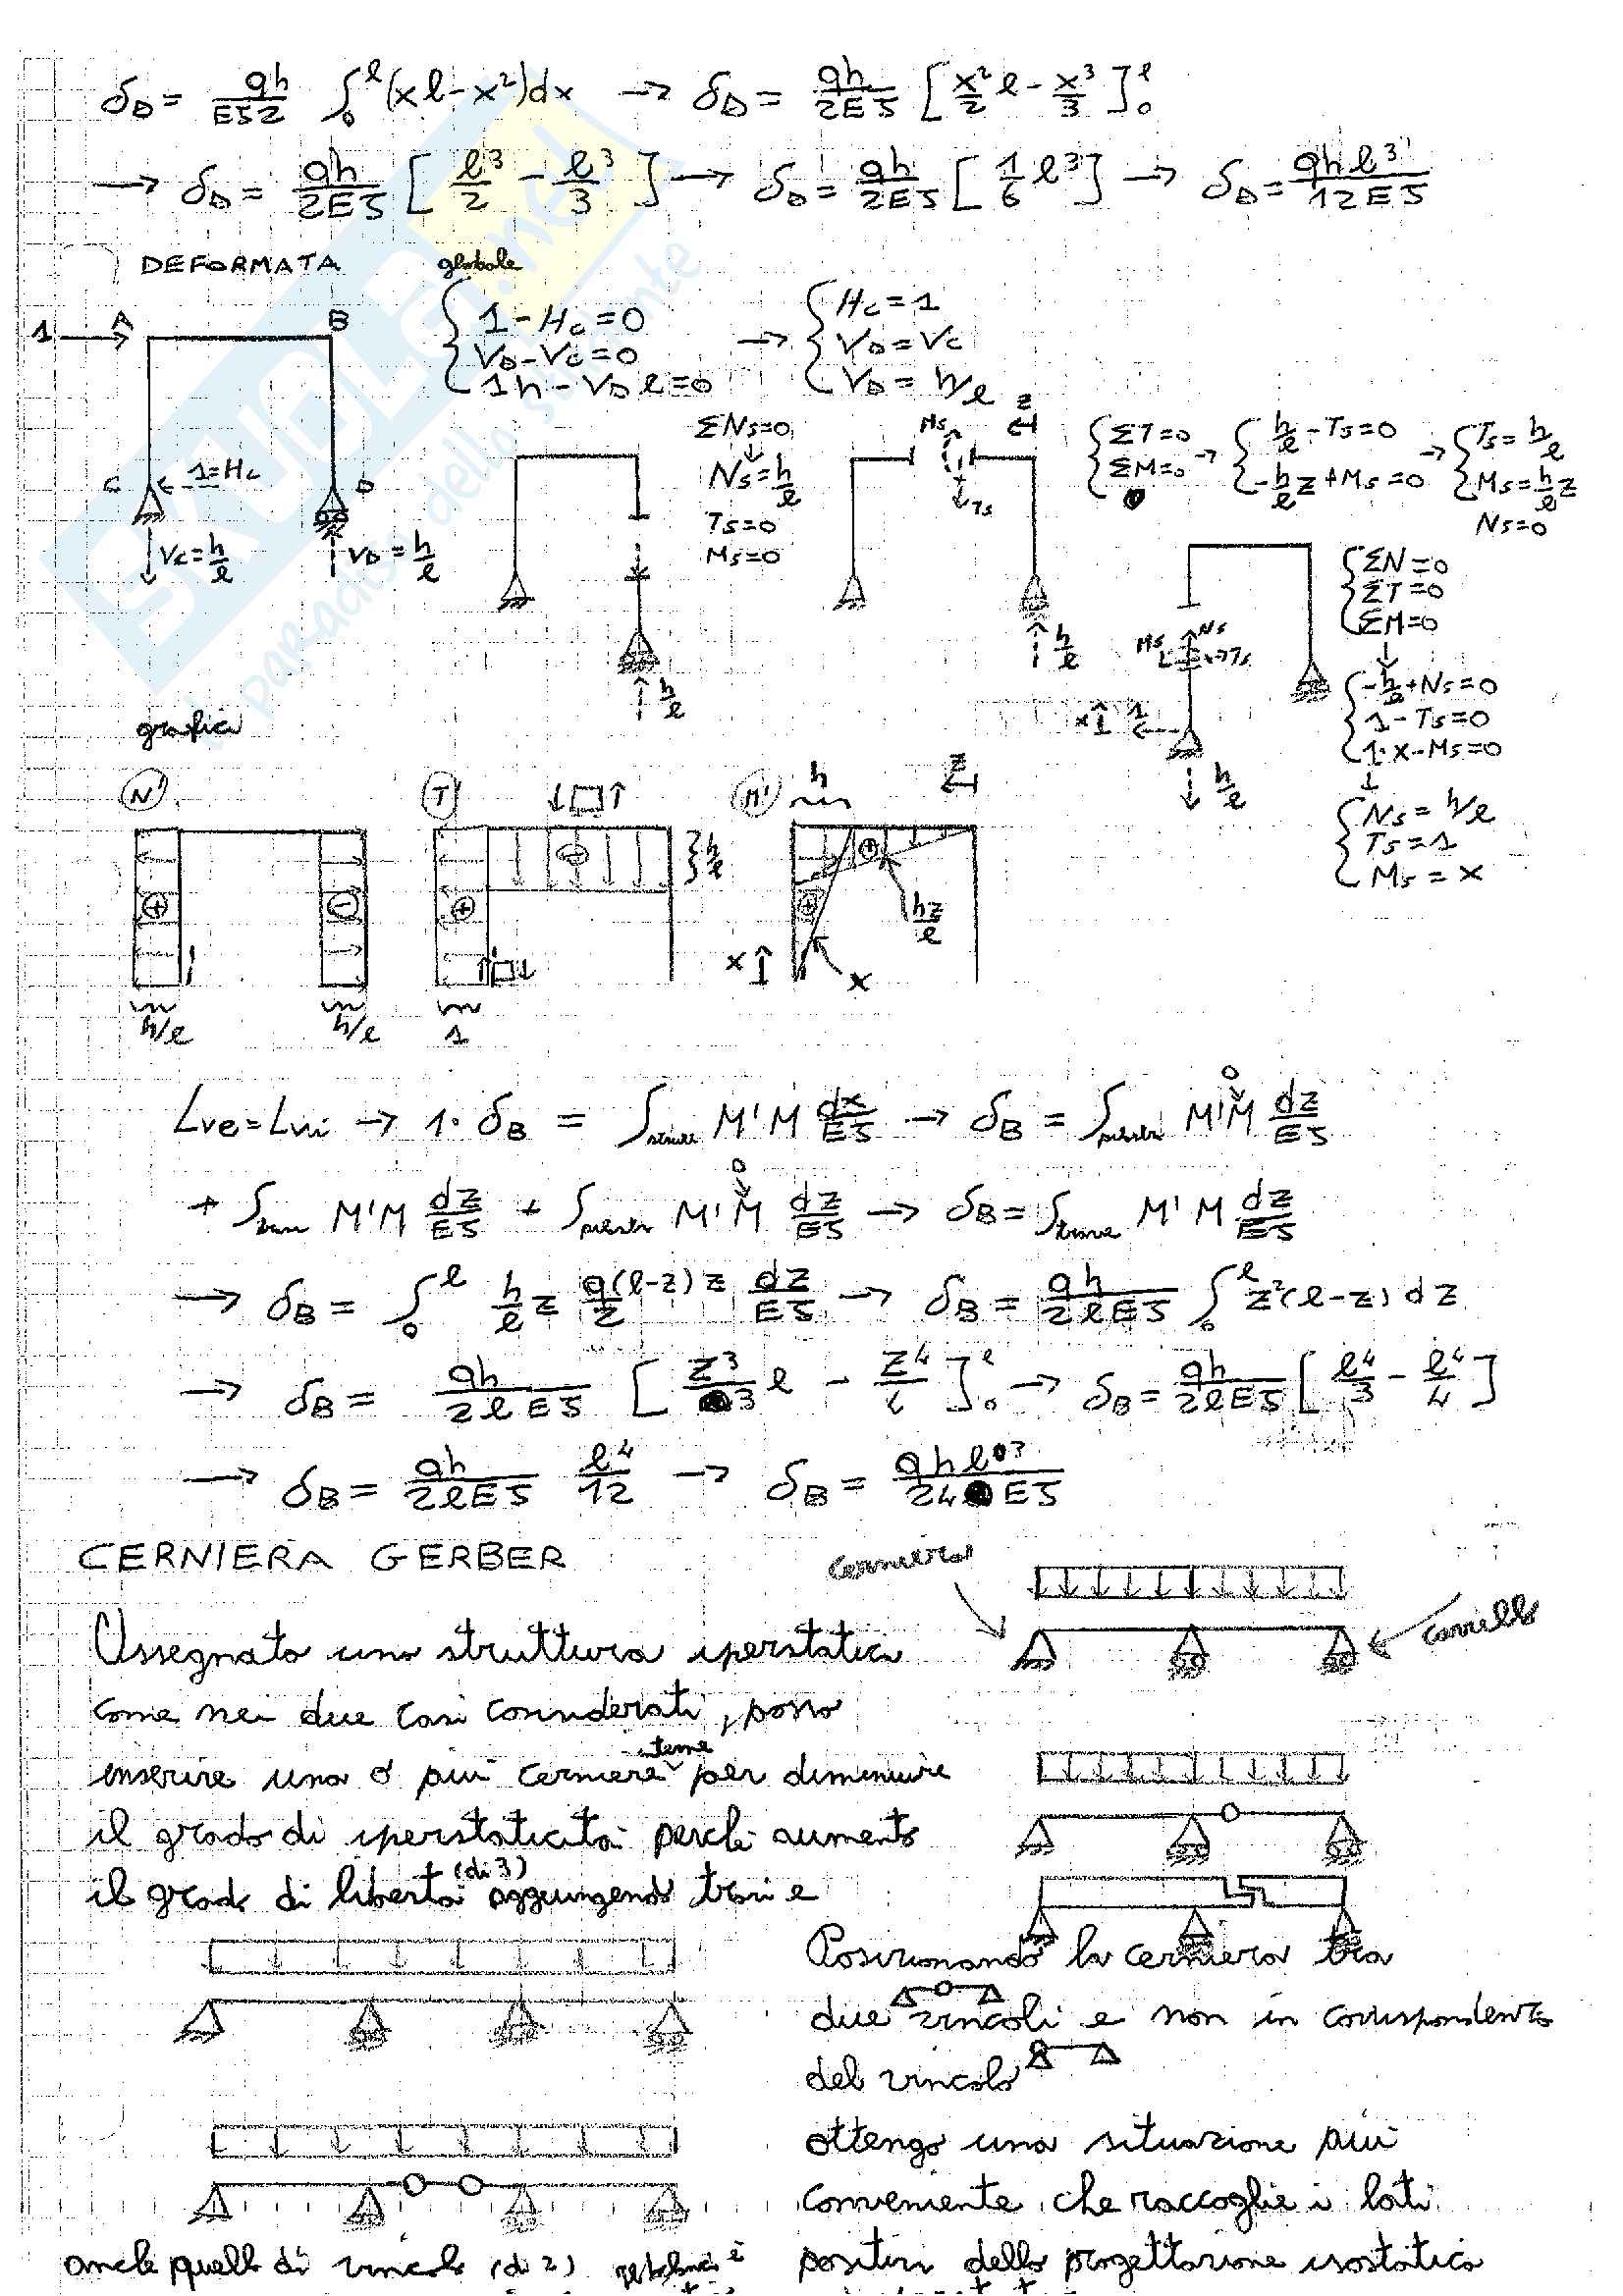 δ_D = qh/EJ2 ∫₀^l (xl-x²)dx → δ_D = qh/2EJ [x²/2 l - x³/3]₀^l
→ δ_D = qh/2EJ [l³/2 - l³/3] → δ_D = qh/2EJ [1/6 l³] → δ_D = qhl³/12EJ
DEFORMATA globale
{1-H_C=0 → {H_C=1
V_D-V_C=0 V_D=V_C
1h-V_D l=0 V_D=h/l
1 A B
C 1=H_C D
V_C=h/l V_D=h/l
ΣN_S=0
N_S=h/l
T_S=0
M_S=0
h/l
M_S z
T_S
h/l
{ΣT=0 → {h/l-T_S=0 → {T_S=h/l
ΣM=0 -h/l z+M_S=0 M_S=h/l z
N_S=0
M_S N_S T_S
x 1
h/l
{ΣN=0
ΣT=0
ΣM=0
{-h/l+N_S=0
1-T_S=0
1·x-M_S=0
{N_S=h/l
T_S=1
M_S=x
grafici
N' T' M' h z
+ - + - + +
h/l hz/l
x x
h/l h/l 1
Lve=Lvi → 1·δ_B = ∫ M'M dx/EJ → δ_B = ∫ M'M dz/EJ
0
+ ∫trave M'M dz/EJ + ∫ M'M dz/EJ → δ_B = ∫trave M'M dz/EJ
0
→ δ_B = ∫₀^l h/l z q(l-z)z/2 dz/EJ → δ_B = qh/2lEJ ∫₀^l z²(l-z)dz
→ δ_B = qh/2lEJ [z³/3 l - z⁴/4]₀^l → δ_B = qh/2lEJ [l⁴/3 - l⁴/4]
→ δ_B = qh/2lEJ l⁴/12 → δ_B = qhl³/24EJ
CERNIERA GERBER
cerniera
carrello
Assegnato una struttura iperstatica
come nei due casi considerati, posso
inserire una o più cerniere interne per diminuire
il grado di iperstaticità perché aumento
il grado di libertà (di 3) aggiungendo travi e
anche quello di vincolo (di 2)
Posizionando la cerniera tra
due vincoli e non in corrispondenza
del vincolo
ottengo una situazione più
conveniente, che raccoglie i lati
positivi della progettazione isostatica